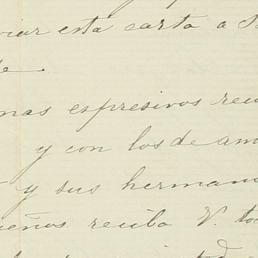 viar esta carta a S
mas expresivos recu
y con los de am
y sus herman
ueños reciba V. to